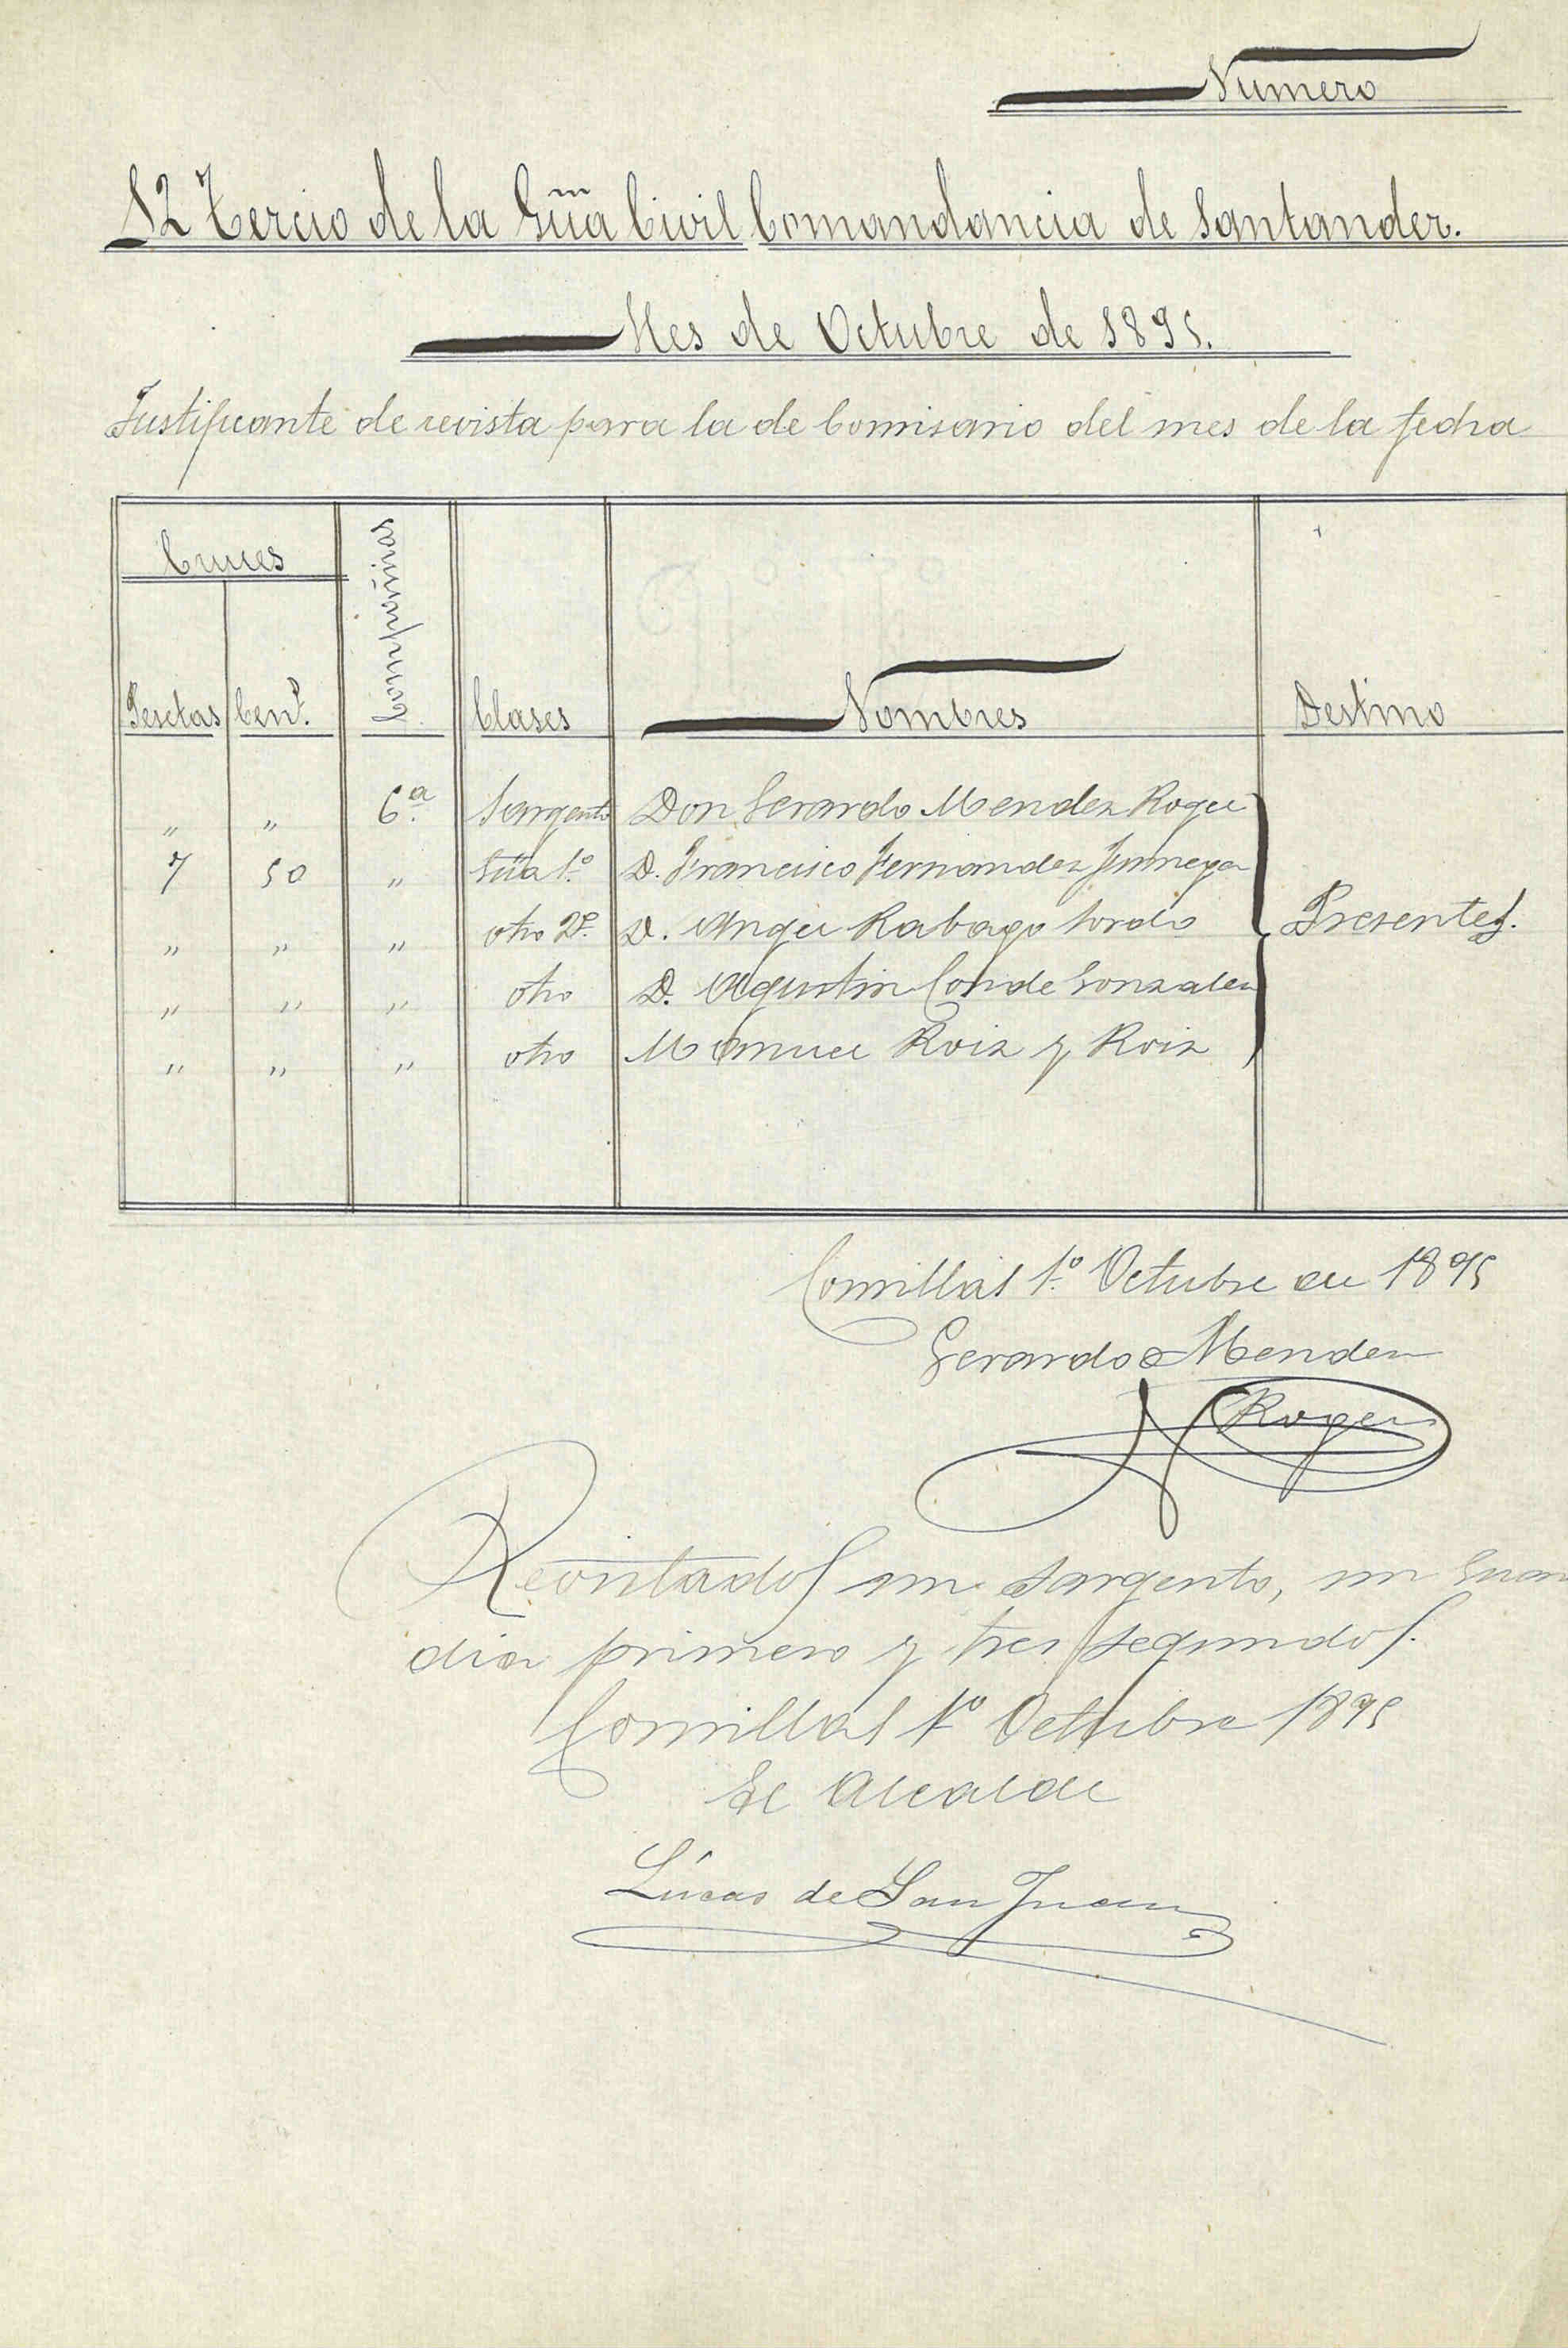 Numero
12 Tercio de la Gũa Civil Comandancia de Santander.
Mes de Octubre de 1895.
Justificante de revista para la de Comisario del mes de la fecha
Cruces
Pesetas Cent. Compañias Clases Nombres Destino
" " 6.ª Sargento Don Gerardo Mendez Roger
7 50 " Gũa 1.º D. Francisco Fernandez
" " " otro 2.º D. Angel Rabago Sordo
Presentes.
" " " otro D. Agustin Conde Gonzalez
" " " otro Manuel Ruiz y Ruiz
Comillas 1.º Octubre de 1895
Gerardo Mendez
Roger
Recontados un Sargento, un Guar
dia primero y tres segundos.
Comillas 1.º Octubre 1895
El Alcalde
Lúcas de San Juan